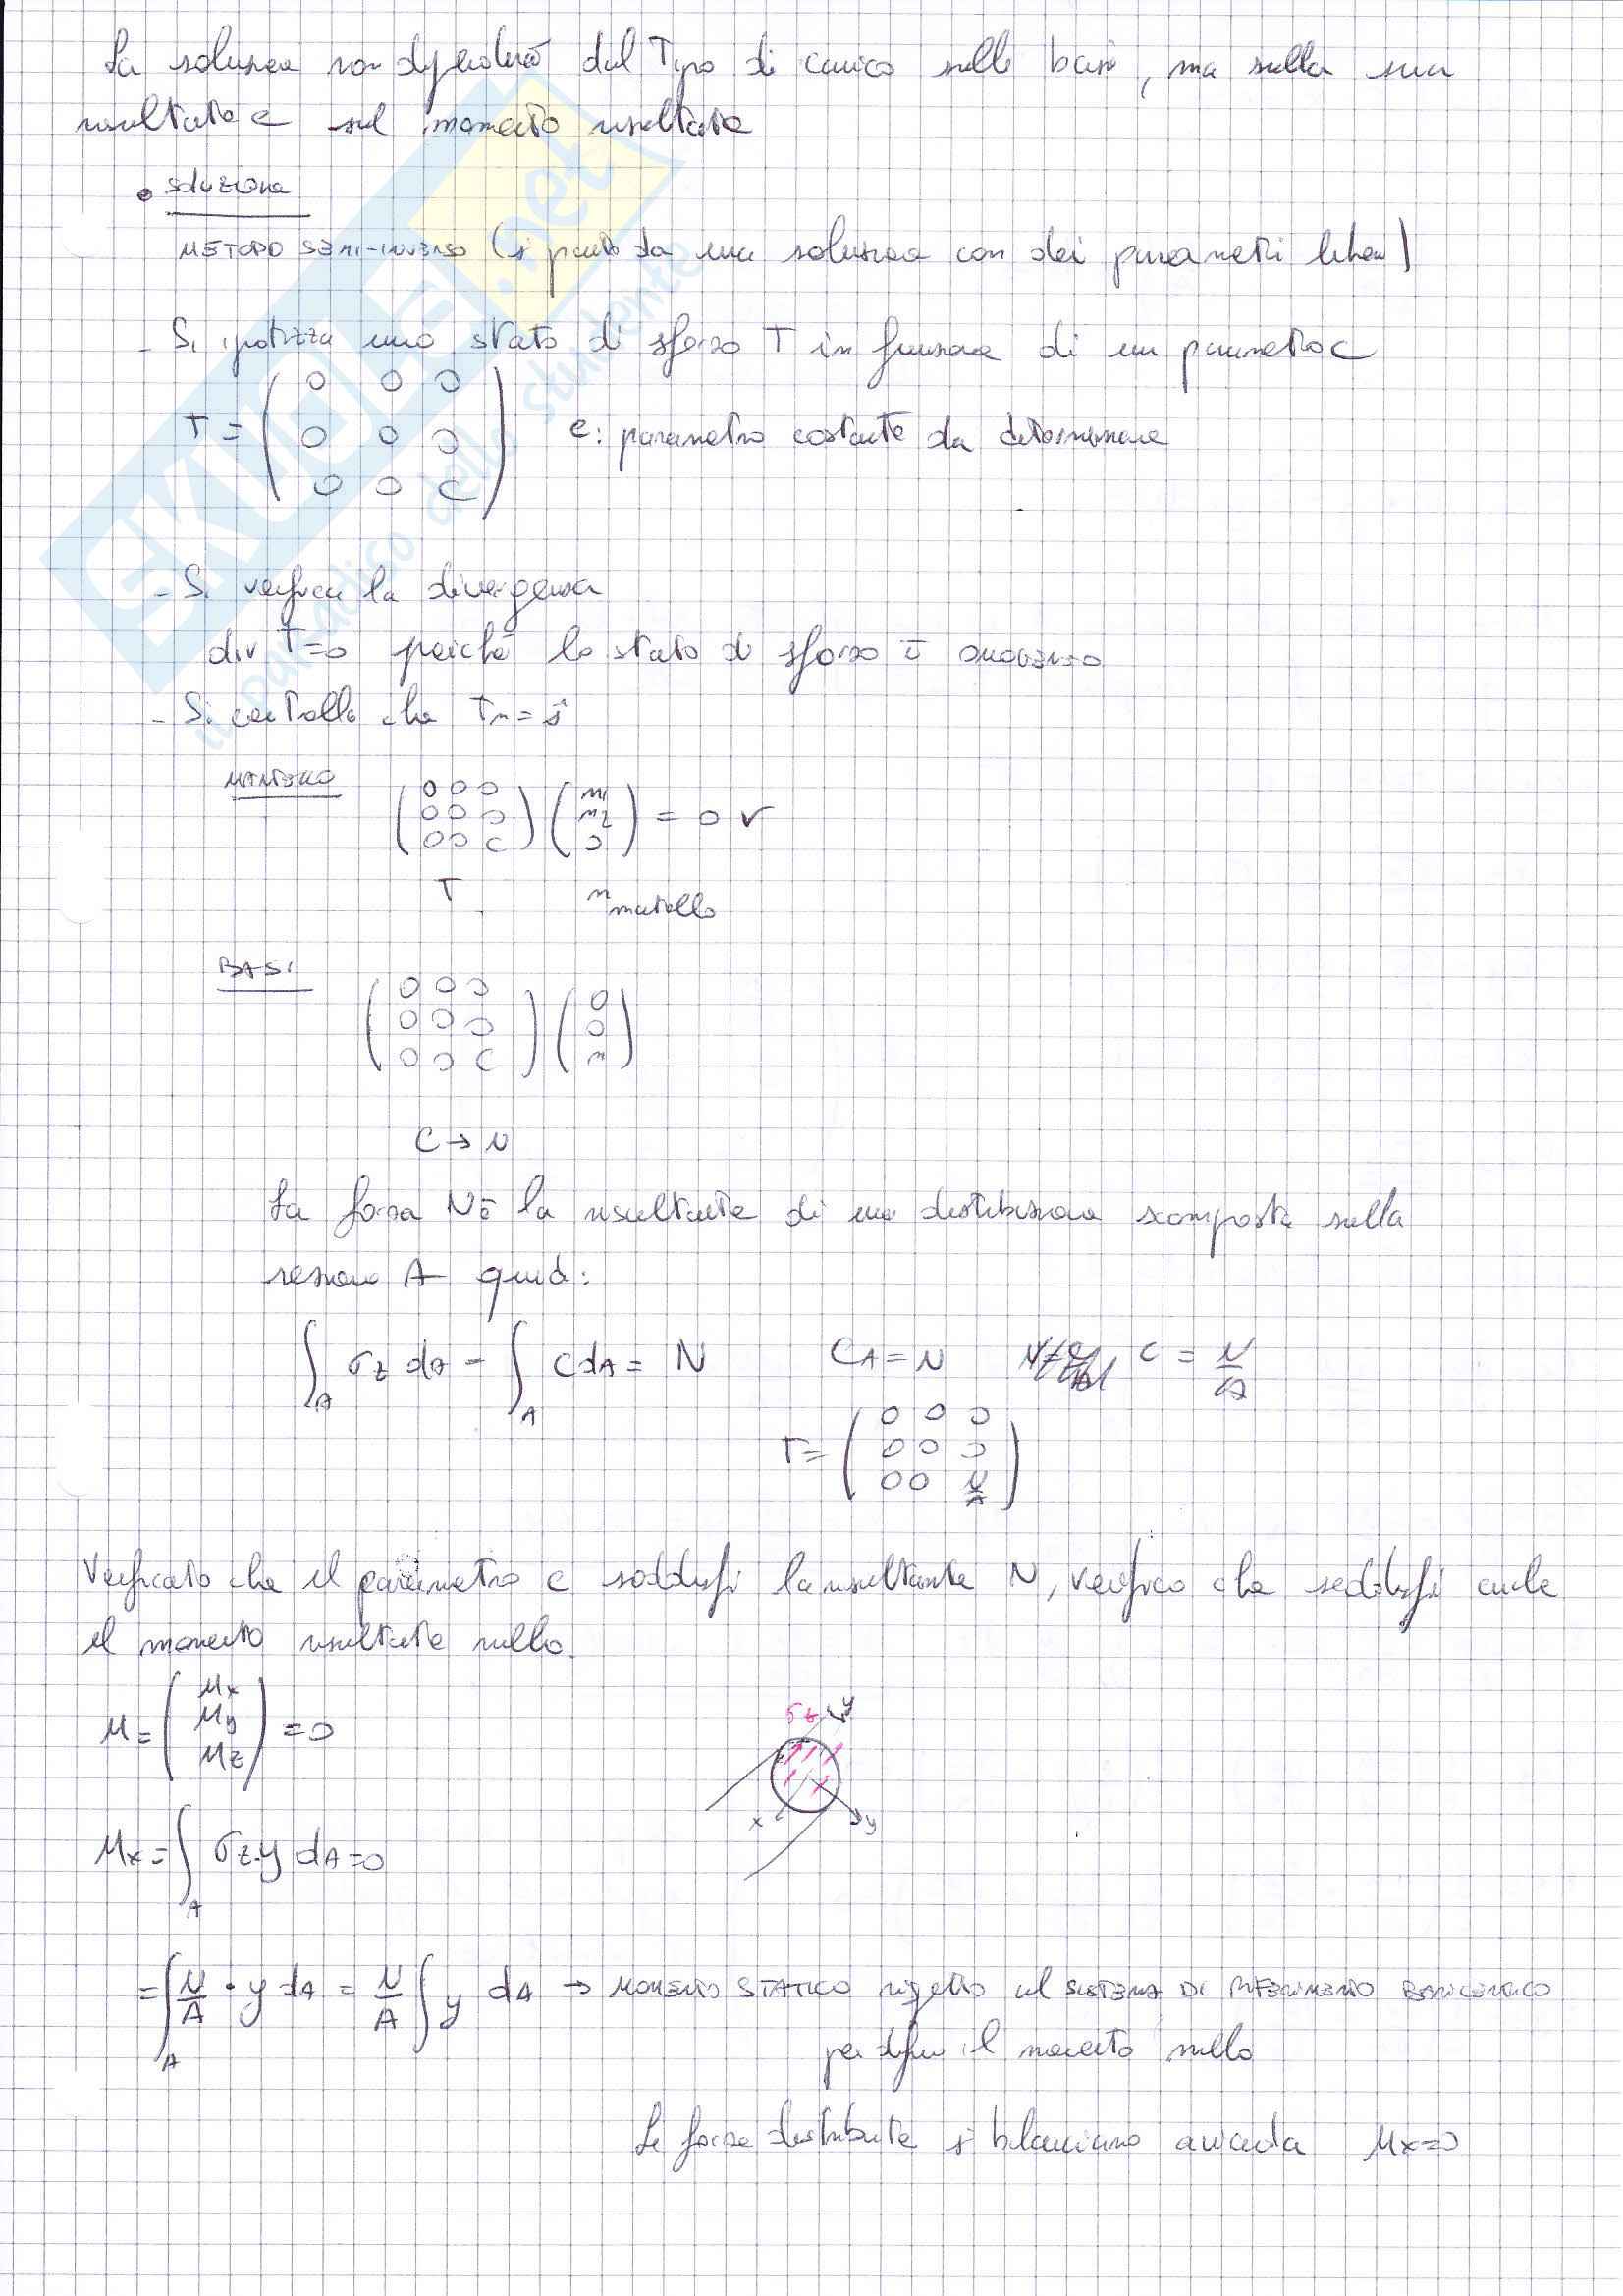 La soluzione non dipenderà dal Tipo di carico sulle basi, ma sulla sua
risultante e sul momento risultante
• SOLUZIONE
METODO SEMI-INVERSO (si parte da una soluzione con dei parametri liberi)
- Si ipotizza uno stato di sforzo T in funzione di un parametro C
T = ( 0 0 0
0 0 0
0 0 C ) c: parametro costante da determinare
- Si verifica la divergenza
div T=0 poiché lo stato di sforzo è OMOGENEO
- Si controlla che Tn = ŝ
MANTELLO
( 0 0 0
0 0 0
0 0 C ) ( n1
n2
0 ) = 0 v
T n mantello
BASI
( 0 0 0
0 0 0
0 0 C ) ( 0
0
n )
C → N
La forza N è la risultante di una distribuzione scomposta sulla
sezione A quindi:
∫A σz dA = ∫A C dA = N CA = N C = N/A
T = ( 0 0 0
0 0 0
0 0 N/A )
Verificato che il parametro c soddisfi la risultante N, verifico che soddisfi anche
il momento risultante nullo.
M = ( Mx
My
Mz ) = 0
σz y
x y
Mx = ∫A σz·y dA = 0
= ∫A N/A · y dA = N/A ∫ y dA → MOMENTO STATICO rispetto al SISTEMA DI RIFERIMENTO BARICENTRICO
per def il momento nullo
Le forze distribuite si bilanciano Mx=0